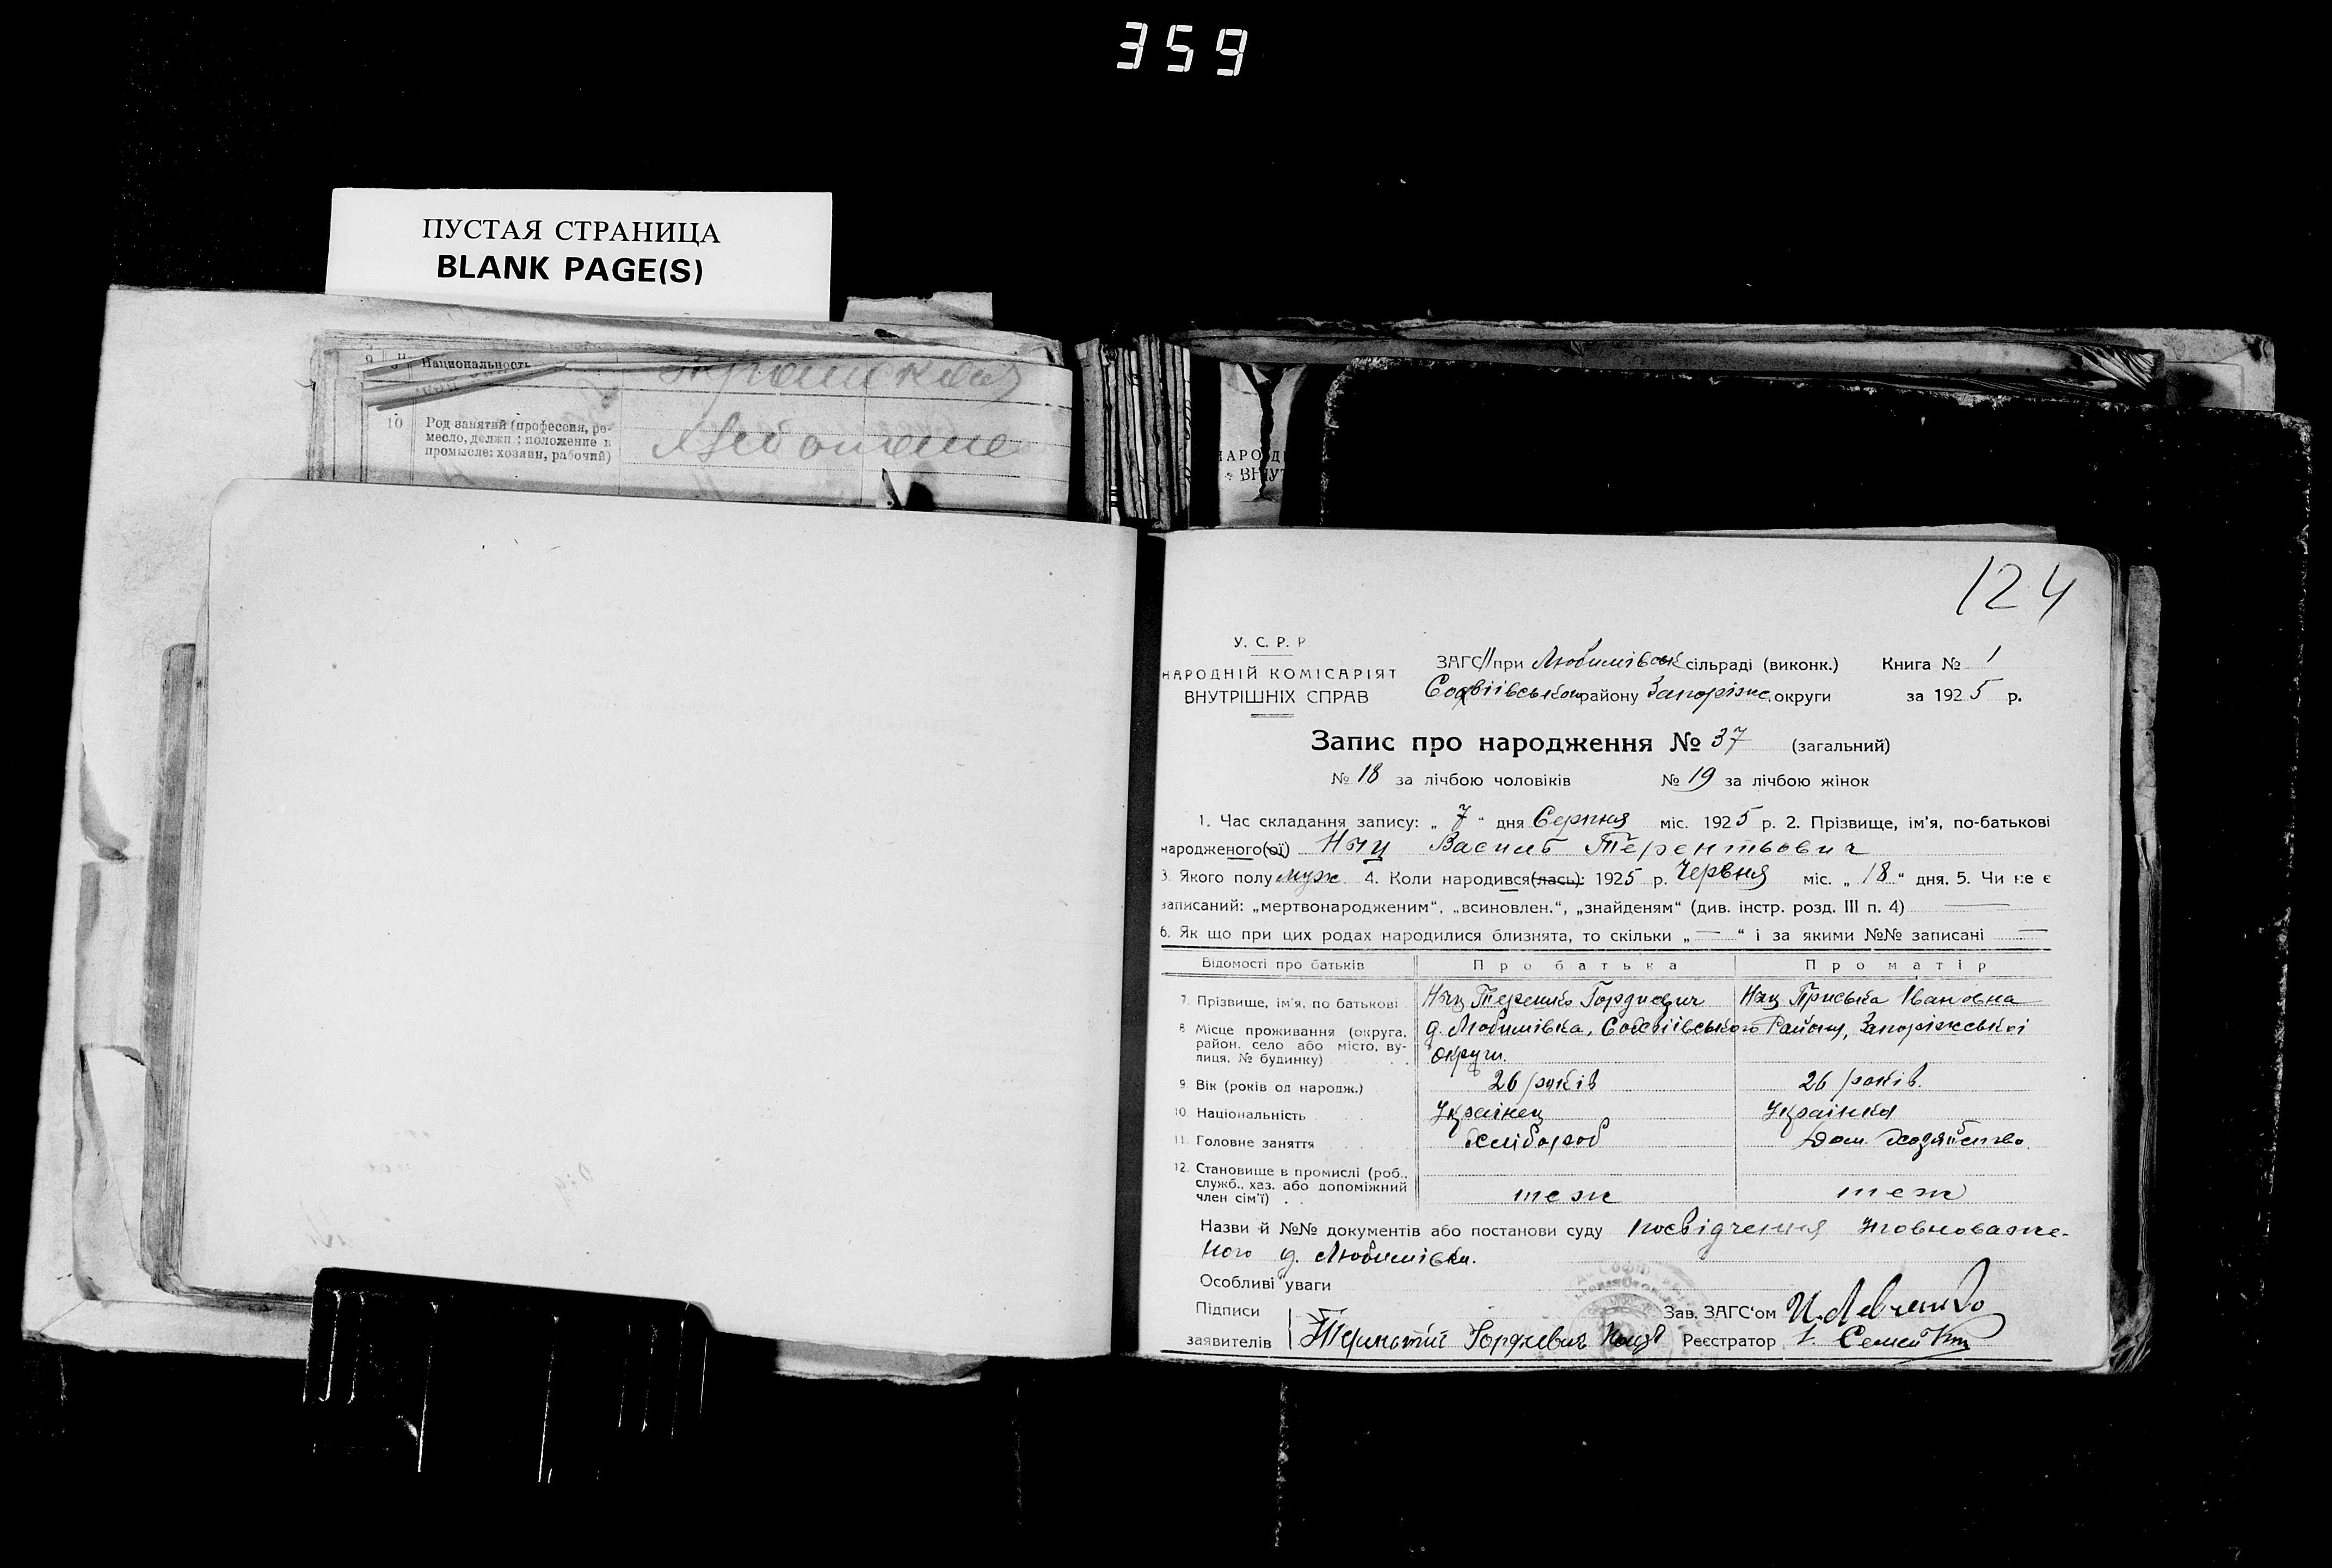 359
ПУСТАЯ СТРАНИЦА
BLANK PAGE(S)
Национальность
10 Род занятий (профессия, ре-
месло, должн.; положение в
промысле: хозяин, рабочий)
124
У. С. Р. Р
НАРОДНІЙ КОМІСАРІЯТ
ВНУТРІШНІХ СПРАВ
ЗАГС при Любимівськ сільраді (виконк.) Книга № 1
Софіївського району Запоріжс. округи за 1925 р.
Запис про народження № 37 (загальний)
№ 18 за лічбою чоловіків № 19 за лічбою жінок
1. Час складання запису: „ 7 “ дня Серпня міс. 1925 р. 2. Прізвище, ім'я, по-батькові
народженого(ої) Ныц Василь Терентьович
3. Якого полу муж 4. Коли народився(лась): 1925 р. Червня міс. „ 18 “ дня. 5. Чи не є
записаний: „мертвонародженим“, „всиновлен.“, „знайденям“ (див. інстр. розд. III п. 4)
6. Як що при цих родах народилися близнята, то скільки „ — “ і за якими №№ записані —
Відомості про батьків Про батька Про матір
7. Прізвище, ім'я, по батькові Ныц Гордиевич Ныц Приська Івановна
8 Місце проживання (округа, район, село або місто, ву-лиця, № будинку) д. Любимівка, Софіївського Району, Запоріжської
округи.
9 Вік (років од народж.) 26 років 26 років.
10. Національність Українец Українка
11. Головне заняття хлібороб Дом. Хозяйство.
12. Становище в промислі (роб., служб., хаз. або допоміжний член сім'ї) теж теж
Назви й №№ документів або постанови суду посвідчення Уповноваже-
ного д. Любимівки.
Особливі уваги
Підписи Зав. ЗАГС'ом И. Левченко
заявителів Терентий Гордиевич Реєстратор